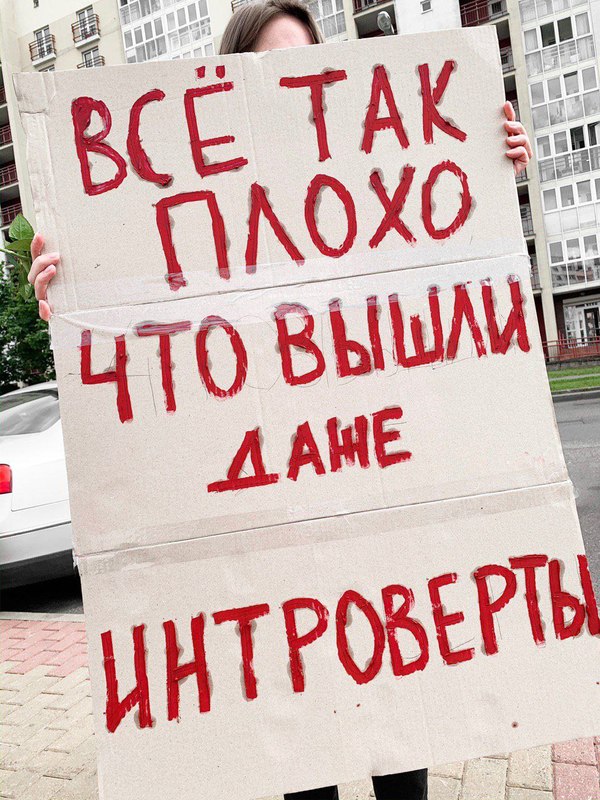 ВСЁ ТАК
ПЛОХО
ЧТО ВЫШЛИ
ДАЖЕ
ИНТРОВЕРТЫ